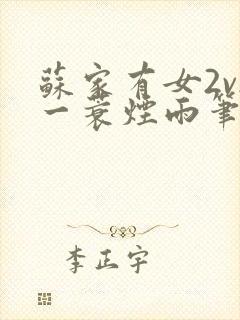 蘇家有女2v
一蓑煙雨筆
李正宇